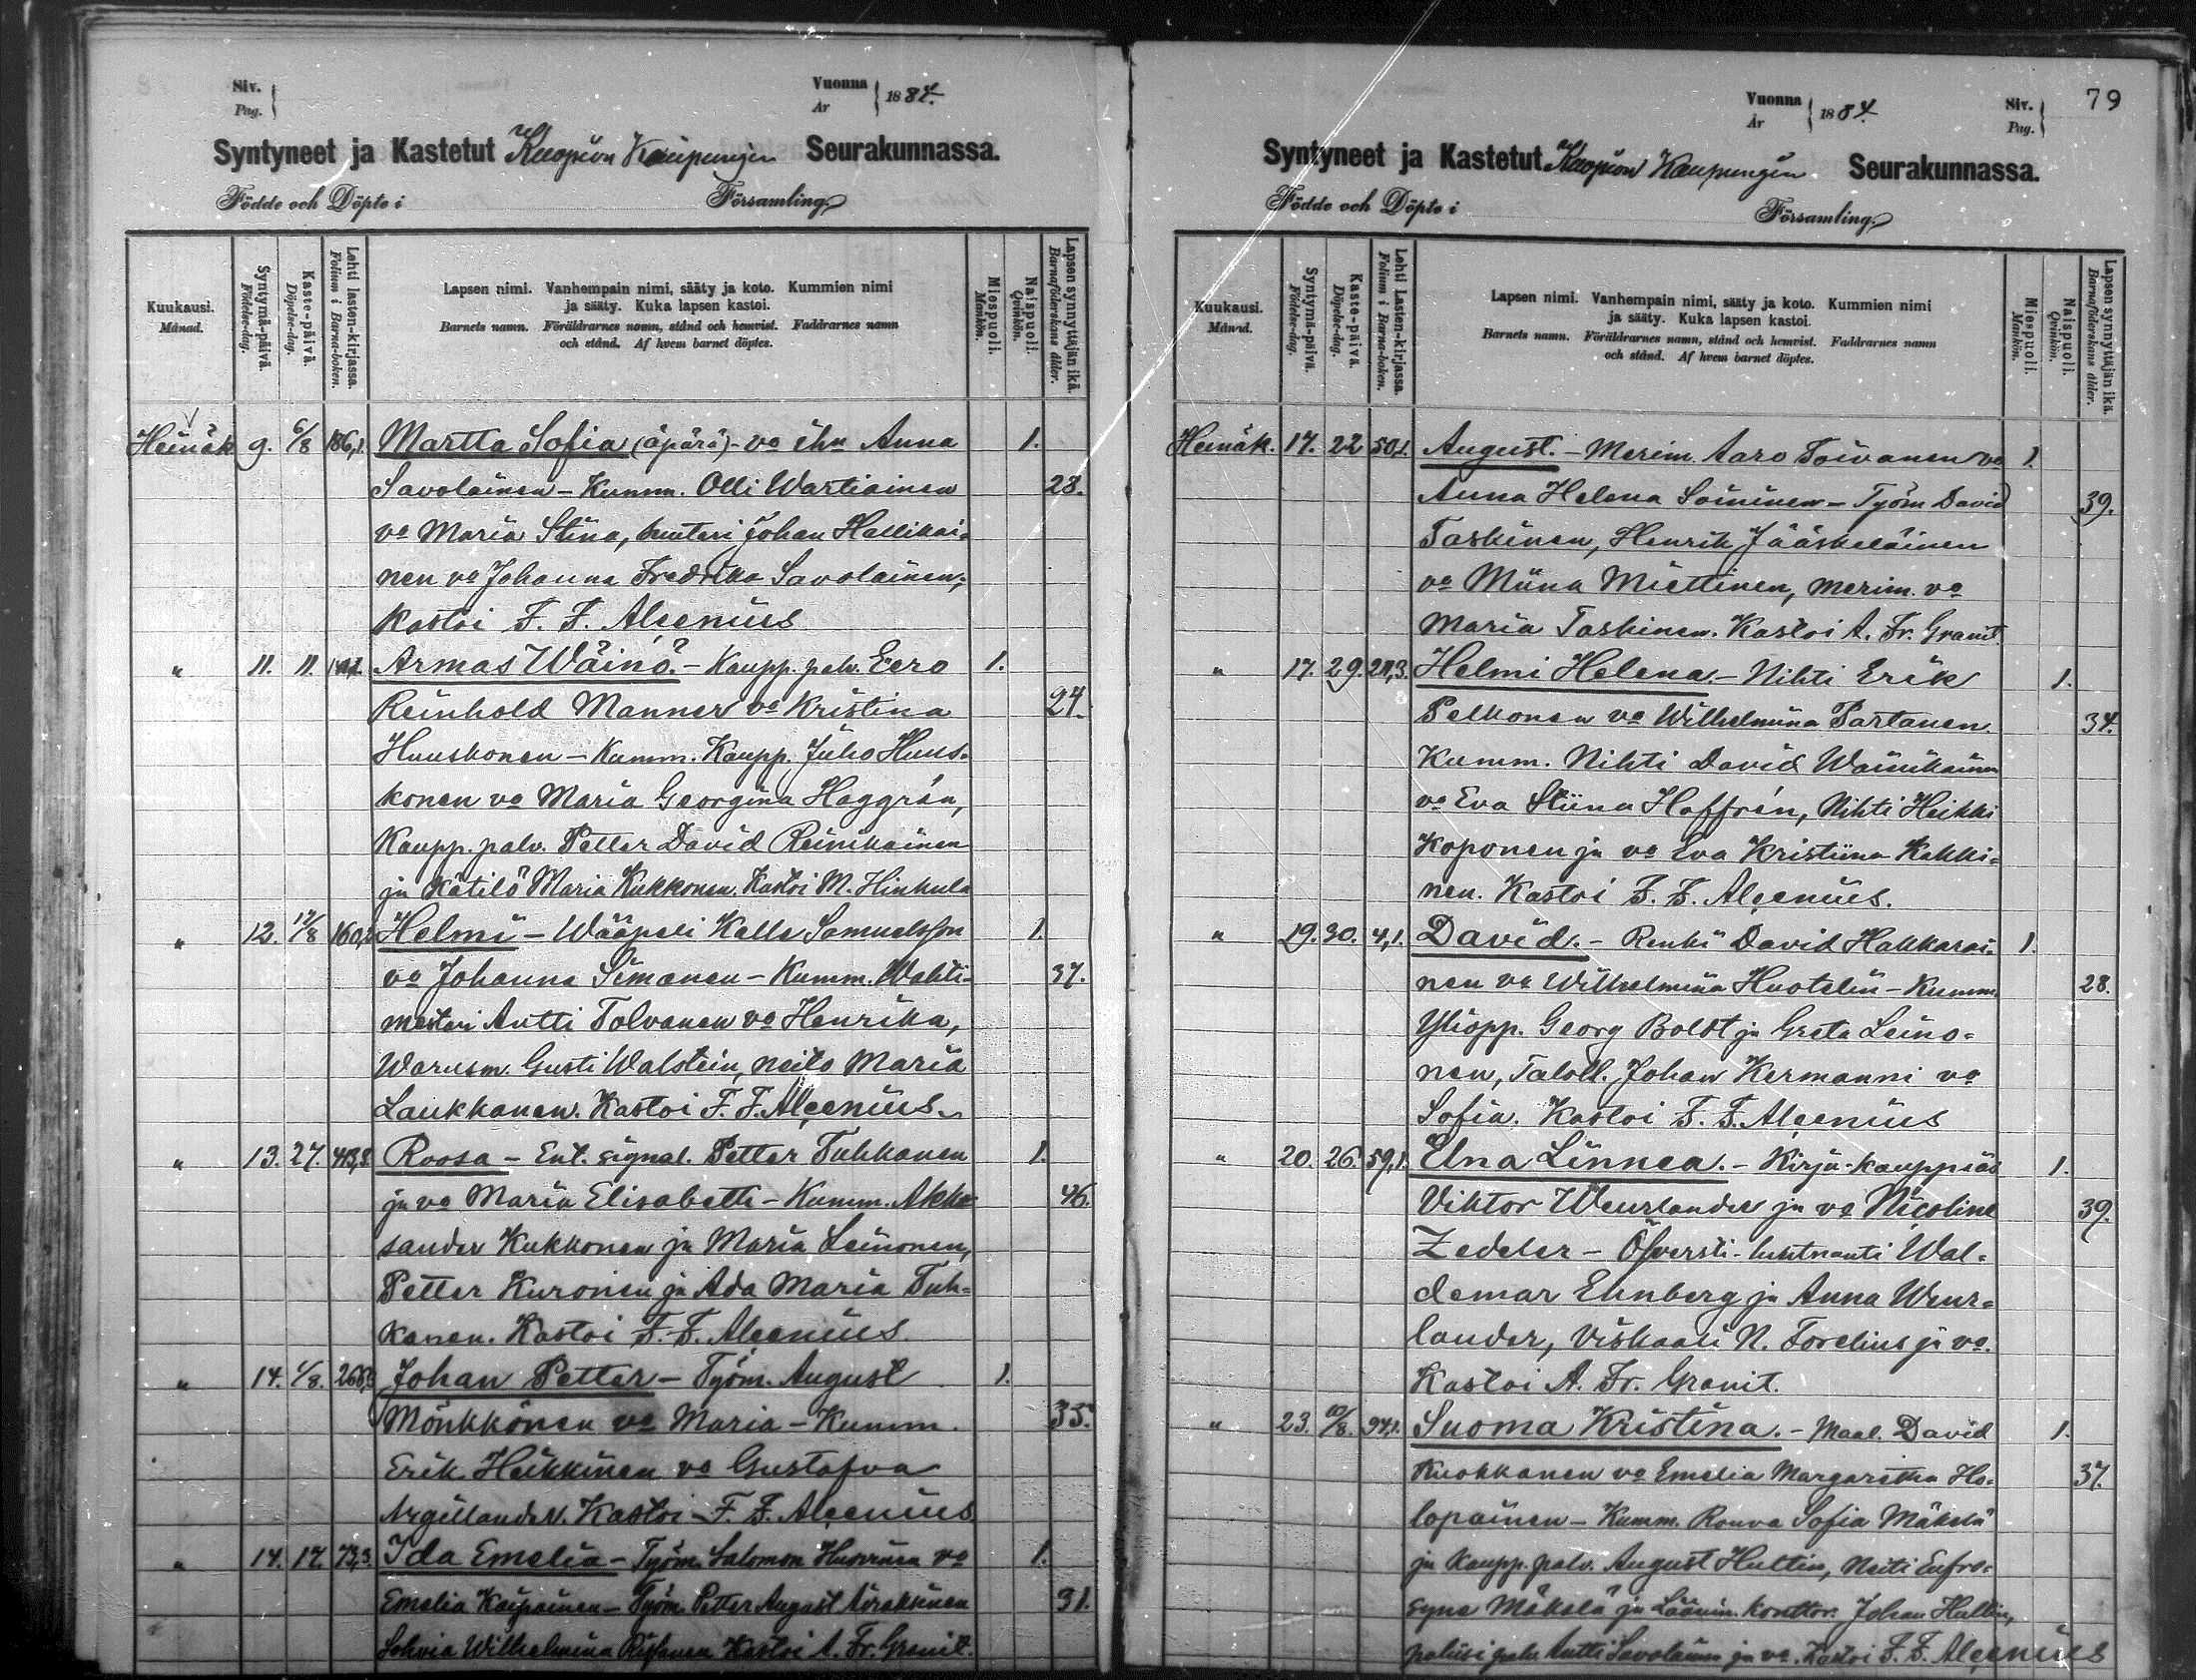 Siv.
Pag.
Vuonna
Ar
1884.
Syntyneet ja Kastetut Kuopion Kaupungin Seurakunnassa.
Födde och Döpte i Församling
Kuukausi.
Månad.
Syntymä-päivä.
Födelse-dag.
Kaste-päivä.
Döpelse-dag.
Lehti lasten-kirjassa.
Folium i Barna-boken.
Lapsen nimi. Vanhempain nimi, sääty ja koto. Kummien nimi
ja sääty. Kuka lapsen kastoi.
Barnets namn. Föräldrarnes namn, stånd och hemvist. Faddrarnes namn
och stånd. Af hvem barnet döptes.
Miespuoli.
Mankön.
Naispuoli.
Qvinkön.
Lapsen synnyttäjän ikä.
Barnaföderskans ålder.
Heinäk. 9. 6/8 186,1. Martta Sofia (äpärä) - va ihn Anna 1.
Savolainen - Kumm. Olli Wartiainen 28.
va Maria Stina, Johan Hallikai-
nen va Johanna Fredrika Savolainen;
Kastoi F. F. Alcenius
" 11. 11. Armas Wäinö. - Kaupp. palv. Eero 1.
Reinhold Manner va Kristina 24.
Huuskonen - Kumm. Kaupp. Juho Huus-
konen va Maria Georgina Häggrén,
Kaupp. palv. Petter David Reinikainen
ja Kätilö Maria Kukkonen. Kastoi M. Hinkula
" 12. 17/8 160, Helmi - Wääpeli Kalle Samuelsson 1.
va Johanna Simanen - Kumm. Wahti- 37.
mestari Antti Tolvanen va Henrika,
Warusm. Gusti Walstein, neito Maria
Laukkanen. Kastoi F. F. Alcenius.
" 13. 27. 413,3. Roosa - Ent. signal. Petter Tuhkanen 1.
ja va Maria Elisabeth - Kumm. Alek- 46.
sander Kukkonen ja Maria Leinonen,
Petter Kuronen ja Ada Maria Tuh-
kanen. Kastoi F. F. Alcenius.
" 14. /8. 268,3 Johan Petter - Työm. August 1.
Mönkkönen va Maria - Kumm. 35.
Erik Heikkinen va Gustafva
Argillander. Kastoi - F. F. Alcenius
" 14. 17. 73,3. Ida Emelia - Työm. Salomon va 1.
Emelia - Työm. Petter August Airaksinen 31.
Wilhelmina Kastoi A. Fr. Granit.
Vuonna
År
1884.
Siv.
Pag.
79
Syntyneet ja Kastetut Kuopion Kaupungin Seurakunnassa.
Födde och Döpte i Församling
Kuukausi.
Månad.
Syntymä-päivä.
Födelse-dag.
Kaste-päivä.
Döpelse-dag.
Lehti Lasten-kirjassa.
Folium i Barna-boken.
Lapsen nimi. Vanhempain nimi, sääty ja koto. Kummien nimi
ja sääty. Kuka lapsen kastoi.
Barnets namn. Föräldrarnes namn, stånd och hemvist. Faddrarnes namn
och stånd. Af hvem barnet döptes.
Miespuoli.
Mankön.
Naispuoli.
Qvinkön.
Lapsen synnyttäjän ikä.
Barnaföderskans ålder.
Heinäk. 17. 22 50,1. August. - Merim. Aaro Toivanen va 1.
Anna Helena Soininen - Työm David 39.
Taskinen, Henrik Jääskeläinen
va Miina Miettinen, merim. va
Maria Taskinen. Kastoi A. Fr. Granit
" 17. 29. 211,3. Helmi Helena. - Nihti Erik 1.
Pelkonen va Wilhelmina Partanen. 34.
Kumm. Nihti David Wäinikainen
va Eva Stiina Hoffrén, Nihti Heikki
Koponen ja va Eva Kristiina Kakki-
nen. Kastoi F. F. Alcenius.
" 19. 30. 4,1. David. - Renki David Hakkarai- 1.
nen va Wilhelmina Huotelin - Kumm. 28.
Yliopp. Georg Boldt ja Greta Leino-
nen, Taloll. Johan Kermanni va
Sofia. Kastoi F. F. Alcenius
" 20. 26. 59,1. Elna Linnea. - Kirja-kauppias 1.
Viktor Weurlander ja va Nicoline 39.
Zedeler - Öfversti-luutnanti Wal-
demar Ehnberg ja Anna Weur-
lander, Viskaali N. Forelius ja va.
Kastoi A. Fr. Granit.
" 23. 10/8. 94,1. Suoma Kristina. - Maal. David 1.
Kuokkanen va Emelia Margaretha Ho- 37.
lopainen - Kumm. Rouva Sofia Mäkelä
ja Kaupp. palv. August Hultin, Neiti Eufro-
syne Mäkelä ja Läänin konttor. Johan Hultin,
poliisi palv. Antti Savolainen ja va. Kastoi F. F. Alcenius